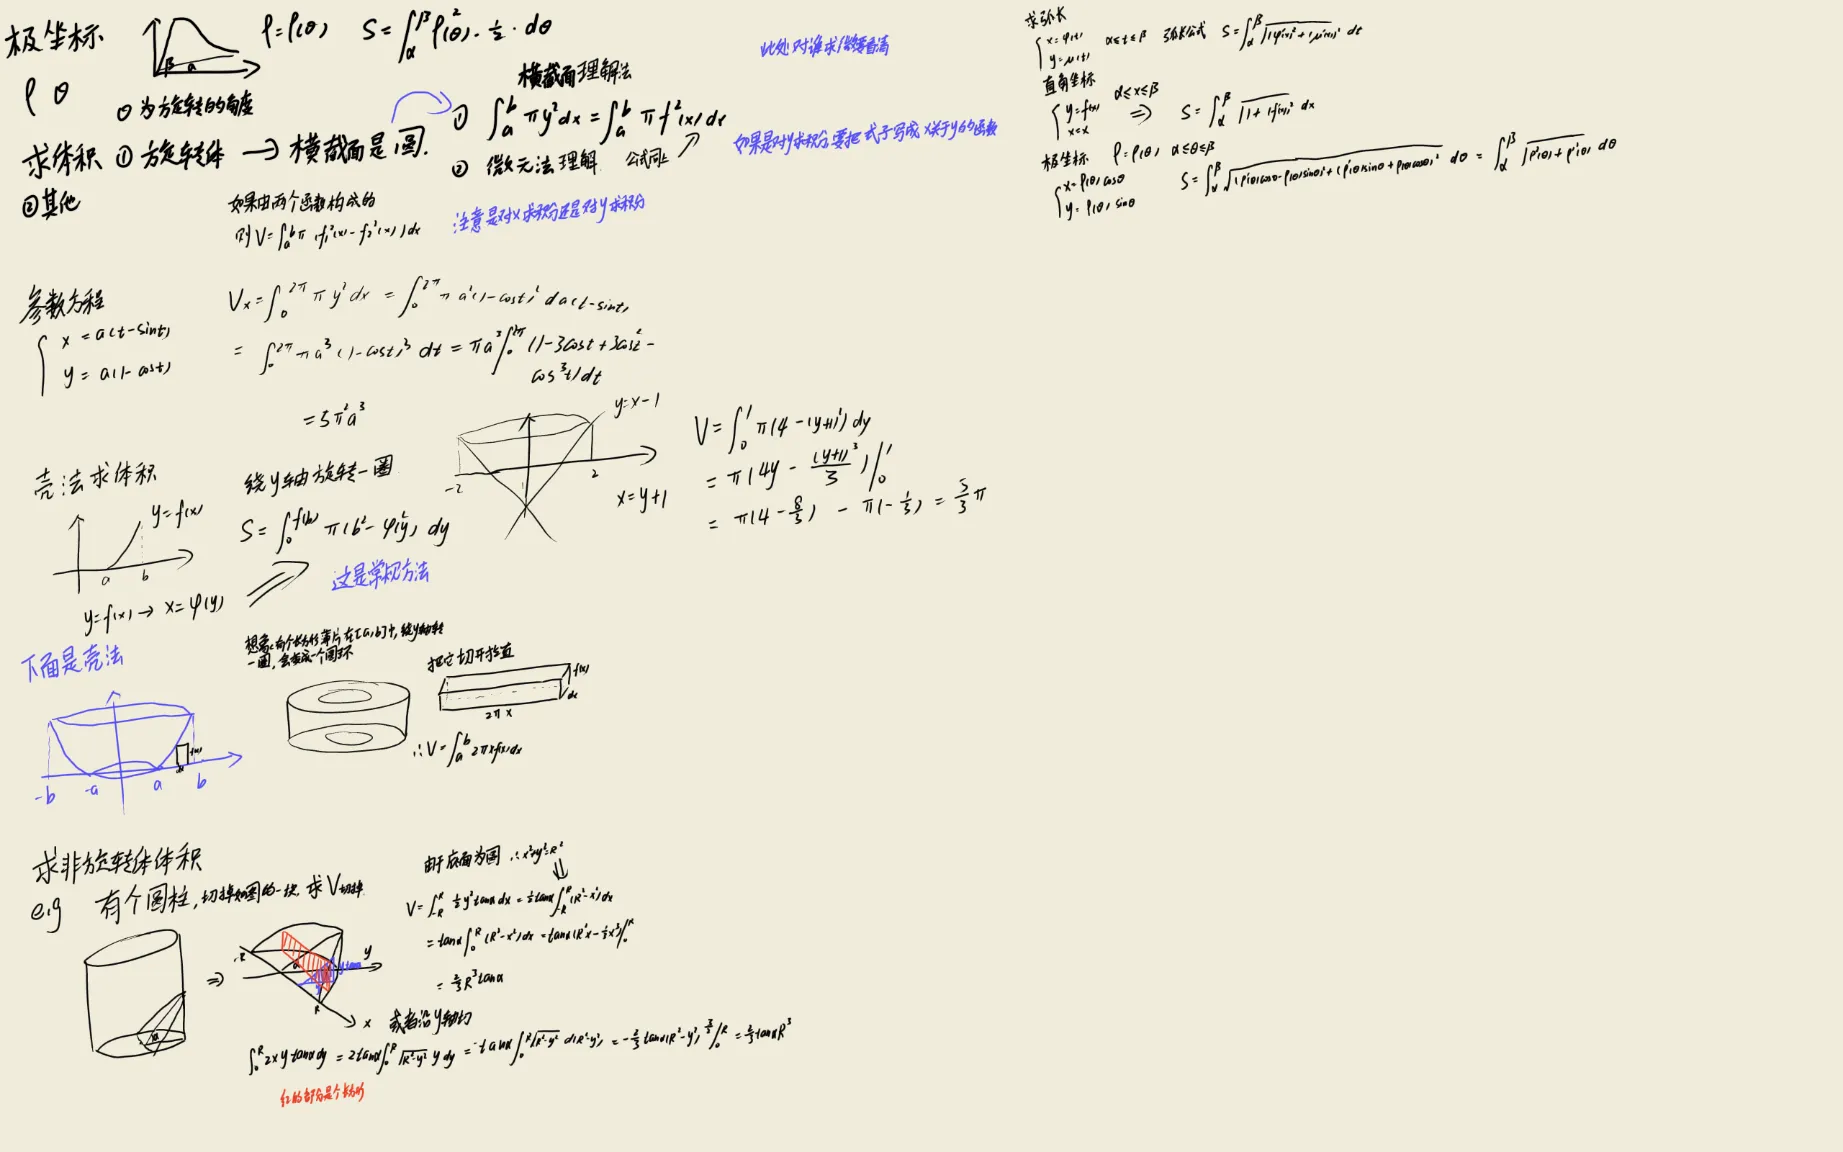 极坐标
ρ θ
β a
ρ=ρ(θ) S=∫_α^β ρ²(θ)·½·dθ
θ为旋转的角度
求体积 ① 方旋转体 → 横截面是圆.
②其他
横截面理解法
① ∫_a^b πy²dx=∫_a^b πf²(x)dx
② 微元法理解 公式同上
此处对谁求
如果是对y求积分,要把式子写成x关于y的函数
注意是对x求积分还是对y求积分
如果由两个函数构成的
则V=∫_a^b π(f₁²(x)-f₂²(x))dx
参数方程
{ x=a(t-sint)
y=a(1-cost)
Vx=∫_0^2π πy²dx=∫_0^2π πa²(1-cost)²da(t-sint)
=∫_0^2π πa³(1-cost)³dt=πa³∫_0^2π(1-3cost+3cos²t-
cos³t)dt
=5π²a³
壳法求体积
y=f(x)
a b
y=f(x)→x=φ(y)
绕y轴旋转一圈
S=∫_0^f(b) π(b²-φ²(y))dy
这是常规方法
y=x-1
-2 2
x=y+1
V=∫_0^1 π(4-(y+1)²)dy
=π(4y-(y+1)³/3)|_0^1
=π(4-8/3)-π(-1/3)=5/3π
下面是壳法
f(x)
dx
-b -a a b
想象有个长方形薄片在[a,b]中,绕y轴转
一圈,会变成一个圆环
把它切开拉直
f(x)
dx
2πx
∴V=∫_a^b 2πxf(x)dx
求非旋转体体积
e.g 有个圆柱,切掉如图的一块,求V切掉
α
⇒
-R α ytanα y
R x
由于底面为圆 ∴x²+y²=R²
V=∫_-R^R ½y²tanαdx=½tanα∫_-R^R(R²-x²)dx
=tanα∫_0^R(R²-x²)dx=tanα(R²x-⅓x³)|_0^R
=⅔R³tanα
或者沿y轴切
∫_0^R 2xytanαdy=2tanα∫_0^R √(R²-y²) ydy=-tanα∫_0^R √(R²-y²) d(R²-y²)=-⅔tanα(R²-y²)^(3/2)|_0^R=⅔tanαR³
红的部分是个长方形
求弧长
{ x=φ(t)
y=μ(t) α≤t≤β 弧长公式 S=∫_α^β √(φ'(t)²+μ'(t)²) dt
直角坐标
{ y=f(x)
x=x α≤x≤β ⇒ S=∫_α^β √(1+f'(x)²) dx
极坐标 ρ=ρ(θ) α≤θ≤β
{ x=ρ(θ)cosθ
y=ρ(θ)sinθ
S=∫_α^β √((ρ'(θ)cosθ-ρ(θ)sinθ)²+(ρ'(θ)sinθ+ρ(θ)cosθ)²) dθ=∫_α^β √(ρ²(θ)+ρ'²(θ)) dθ